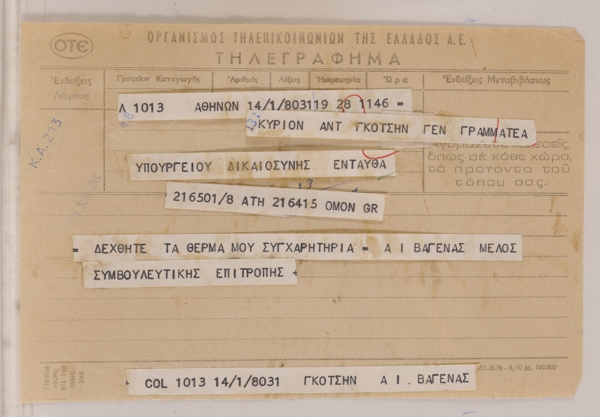 ΟΤΕ
ΟΡΓΑΝΙΣΜΟΣ ΤΗΛΕΠΙΚΟΙΝΩΝΙΩΝ ΤΗΣ ΕΛΛΑΔΟΣ Α.Ε.
ΤΗΛΕΓΡΑΦΗΜΑ
Ἐνδείξεις Λήψεως
Γραφεῖον Καταγωγῆς Ἀριθμὸς Λέξεις Ἡμερομηνία Ὥρα
Ἐνδείξεις Μεταβιβάσεως
Λ 1013 ΑΘΗΝΩΝ 14/1/803119 28 1146 =
ΚΥΡΙΟΝ ΑΝΤ ΓΚΟΤΣΗΝ ΓΕΝ ΓΡΑΜΜΑΤΕΑ
Κ.Α. 213
ΥΠΟΥΡΓΕΙΟΥ ΔΙΚΑΙΟΣΥΝΗΣ ΕΝΤΑΥΘΑ
ὅπως σὲ κάθε χώρα,
τὰ προϊόντα τοῦ
τόπου σας.
216501/8 ΑΤΗ 216415 ΟΜΟΝ GR
= ΔΕΧΘΗΤΕ ΤΑ ΘΕΡΜΑ ΜΟΥ ΣΥΓΧΑΡΗΤΗΡΙΑ = Α Ι ΒΑΓΕΝΑΣ ΜΕΛΟΣ
ΣΥΜΒΟΥΛΕΥΤΙΚΗΣ ΕΠΙΤΡΟΠΗΣ +
COL 1013 14/1/8031 ΓΚΟΤΣΗΝ Α Ι. ΒΑΓΕΝΑΣ